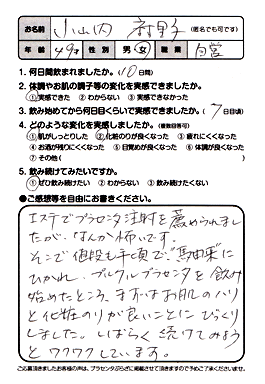 お名前 小山内 (匿名でも可です)
年齢 49才 性別 男・女 職業 自営
1. 何日間飲まれましたか。(10日間)
2. 体調やお肌の調子等の変化を実感できましたか。
①実感できた ②わからない ③実感できなかった
3. 飲み始めてから何日目くらいで実感できましたか。(7日目頃)
4. どのような変化を実感しますか。(複数回答可)
①肌がしっとりした ②化粧のりが良くなった ③疲れにくくなった
④お酒が残りにくくなった ⑤目覚めが良くなった ⑥体調が良くなった
⑦その他( )
5. 飲み続けてみたいですか。
①ぜひ飲み続けたい ②わからない ③飲み続けたくない
●ご感想等を自由にお書きください。
エステでプラセンタ注射を薦められまし
たが、なんか怖いです。
そこで値段も手頃で、"馬由来"に
ひかれ、プルプルプラセンタを飲み
始めたところ、まずはお肌のハリ
と化粧のりが良いことにびっくり
しました。しばらく続けてみよう
とワクワクしています。
ご応募頂きましたお客様の声は、プラセンタぷらざに掲載させて頂きますので予めご了承くださいませ。